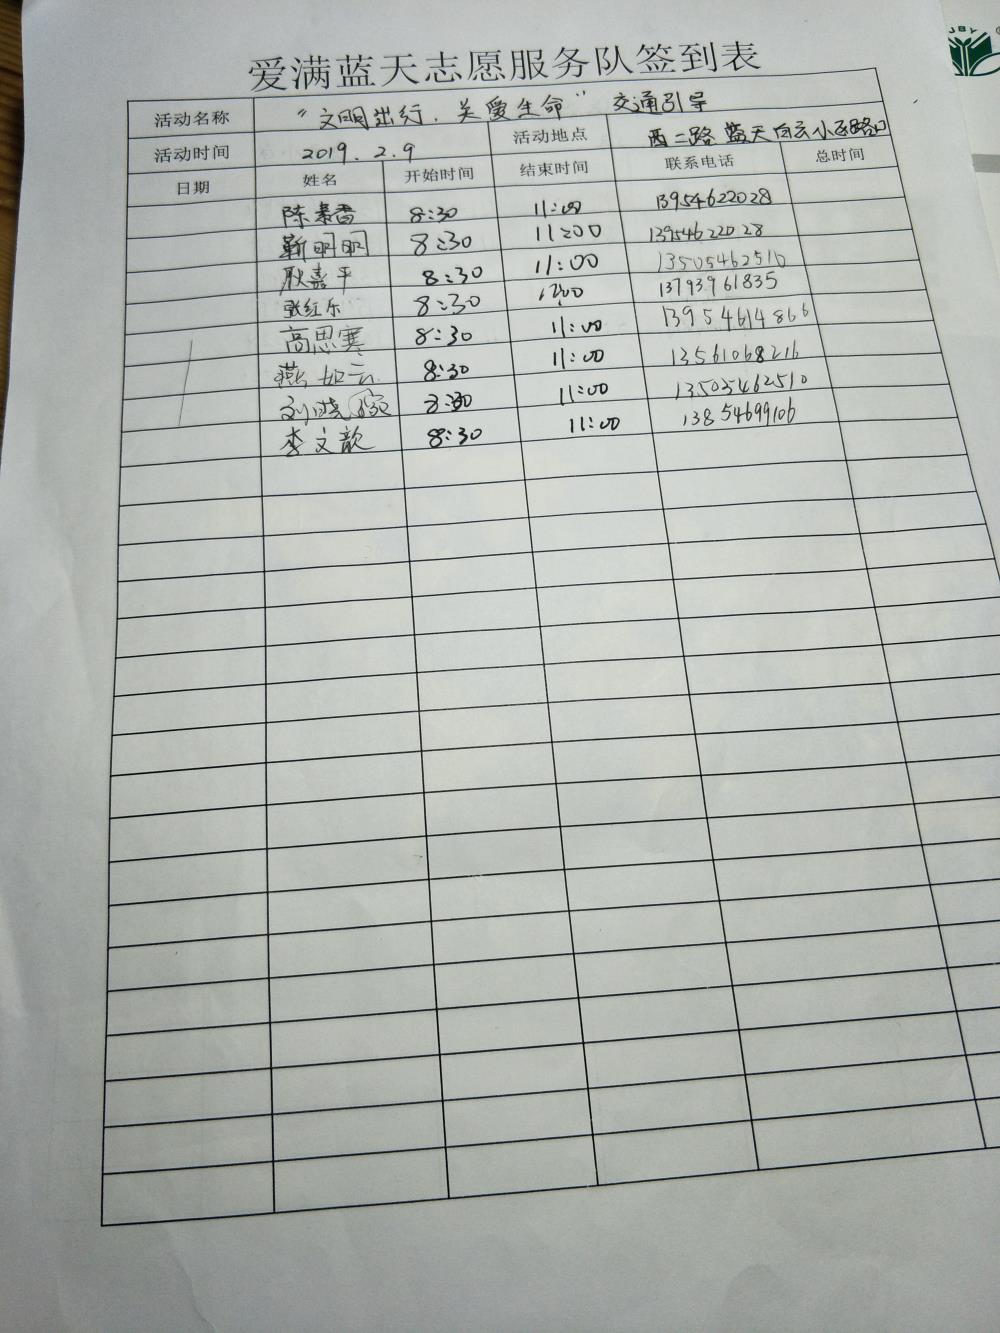 JBY
爱满蓝天志愿服务队签到表
活动名称 “文明出行.关爱生命” 交通引导
活动时间 2019.2.9 活动地点 西二路蓝天白云小区路口
日期 姓名 开始时间 结束时间 联系电话 总时间
陈素香 8:30 11:00 13954622028
靳明明 8:30 11:00 13954622028
耿嘉平 8:30 11:00 13505462510
张红乐 8:30 11:00 13793961835
高思寒 8:30 11:00 13954614866
燕如云 8:30 11:00 13561068216
刘晓 8:30 11:00 13505462510
李文歆 8:30 11:00 13854699106